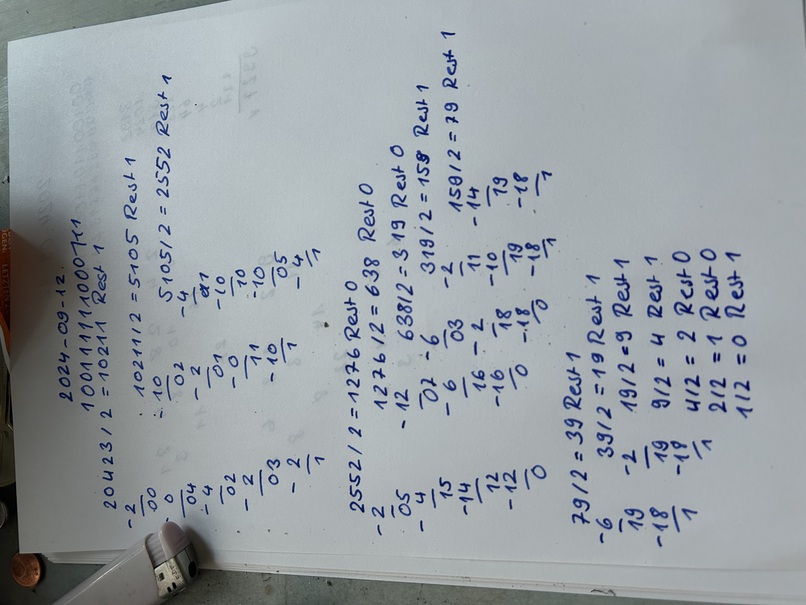 LETZTER
2024-09-12
100111111000111
20423/2 = 10211 Rest 1
-2
00
-0
04
-4
02
-2
03
-2
1
10211/2 = 5105 Rest 1
-10
02
-2
01
-0
11
-10
1
5105/2 = 2552 Rest 1
-4
11
-10
10
-10
05
-4
1
2552/2 = 1276 Rest 0
-2
05
-4
15
-14
12
-12
0
1276/2 = 638 Rest 0
-12
07
-6
16
-16
0
638/2 = 319 Rest 0
-6
03
-2
18
-18
0
319/2 = 159 Rest 1
-2
11
-10
19
-18
1
159/2 = 79 Rest 1
-14
19
-18
1
79/2 = 39 Rest 1
-6
19
-18
1
39/2 = 19 Rest 1
-2
19
-18
1
19/2 = 9 Rest 1
9/2 = 4 Rest 1
4/2 = 2 Rest 0
2/2 = 1 Rest 0
1/2 = 0 Rest 1